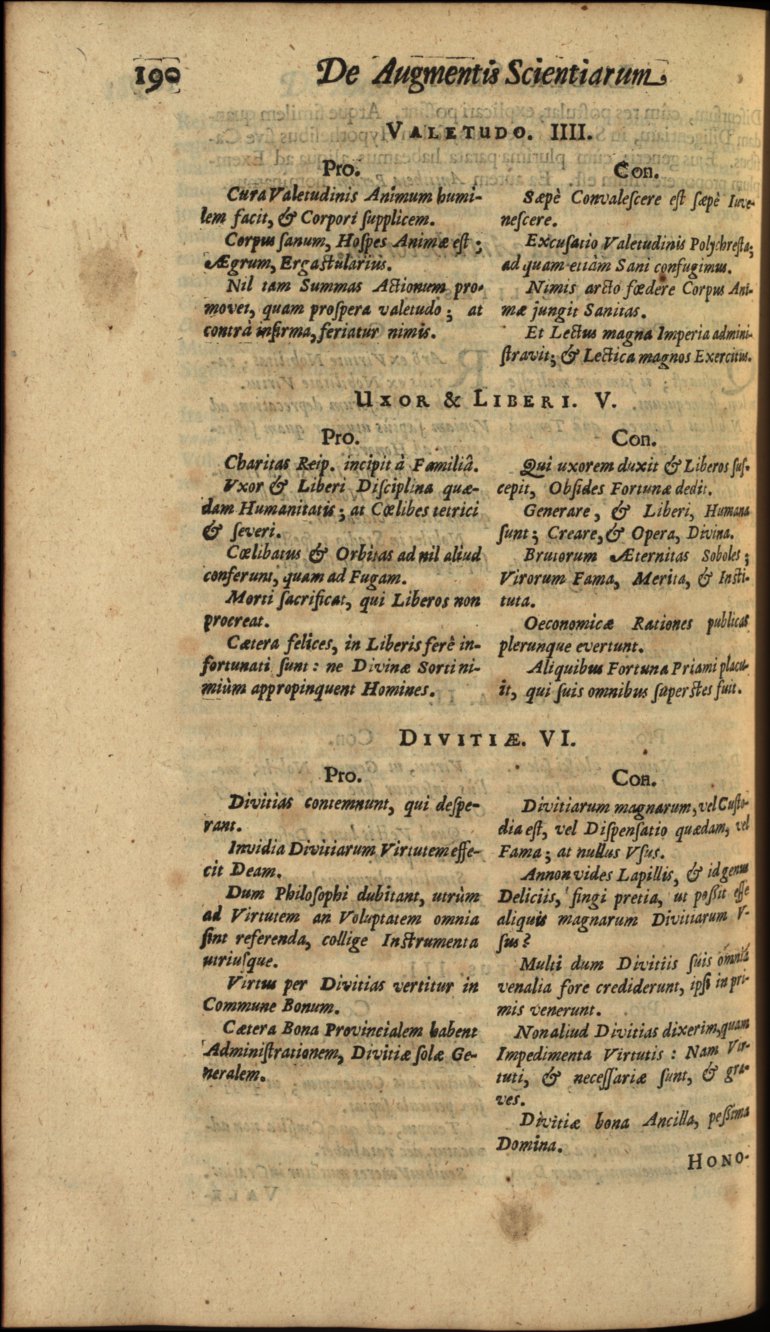 190
De Augmentis Scientiarum
VALETUDO. IIII.
Pro.
Cura Valetudinis Animum humi-
lem facit, & Corpori supplicem.
Corpus sanum, Hospes Animæ est;
Ægrum, Ergastularius.
Nil tam Summas Actionum pro-
movet, quam prospera valetudo; at
contrà infirma, feriatur nimis.
Con.
Sæpè Convalescere est sæpè Iuve-
nescere.
Excusatio Valetudinis Polychresta;
ad quam etiàm Sani confugimus.
Nimis arcto fœdere Corpus Ani-
mæ jungit Sanitas.
Et Lectus magna Imperia admini-
stravit; & Lectica magnos Exercitus.
UXOR & LIBERI. V.
Pro.
Charitas Reip. incipit à Familiâ.
Vxor & Liberi Disciplina quæ-
dam Humanitatis; at Cœlibes tetrici
& severi.
Cœlibatus & Orbitas ad nil aliud
conferunt, quam ad Fugam.
Morti sacrificat, qui Liberos non
procreat.
Cætera felices, in Liberis ferè in-
fortunati sunt: ne Divinæ Sorti ni-
miùm appropinquent Homines.
Con.
Qui uxorem duxit & Liberos sus-
cepit, Obsides Fortunæ dedit.
Generare, & Liberi, Humana
sunt; Creare, & Opera, Divina.
Brutorum Æternitas Soboles;
Virorum Fama, Merita, & Insti-
tuta.
Oeconomicæ Rationes publicas
plerunque evertunt.
Aliquibus Fortuna Priami placu-
it, qui suis omnibus superstes fuit.
DIVITIÆ. VI.
Pro.
Divitias contemnunt, qui despe-
rant.
Invidia Divitiarum Virtutem effe-
cit Deam.
Dum Philosophi dubitant, utrùm
ad Virtutem an Voluptatem omnia
sint referenda, collige Instrumenta
utriusque.
Virtus per Divitias vertitur in
Commune Bonum.
Cætera Bona Provincialem habent
Administrationem, Divitiæ solæ Ge-
neralem.
Con.
Divitiarum magnarum, vel Custo-
dia est, vel Dispensatio quædam, vel
Fama; at nullus Vsus.
Annon vides Lapillis, & id genus
Deliciis, fingi pretia, ut possit esse
aliquis magnarum Divitiarum V-
sus?
Multi dum Divitiis suis omnia
venalia fore crediderunt, ipsi in pri-
mis venerunt.
Non aliud Divitias dixerim, quam
Impedimenta Virtutis: Nam Vir-
tuti, & necessariæ sunt, & gra-
ves.
Divitiæ bona Ancilla, pessima
Domina.
HONO-